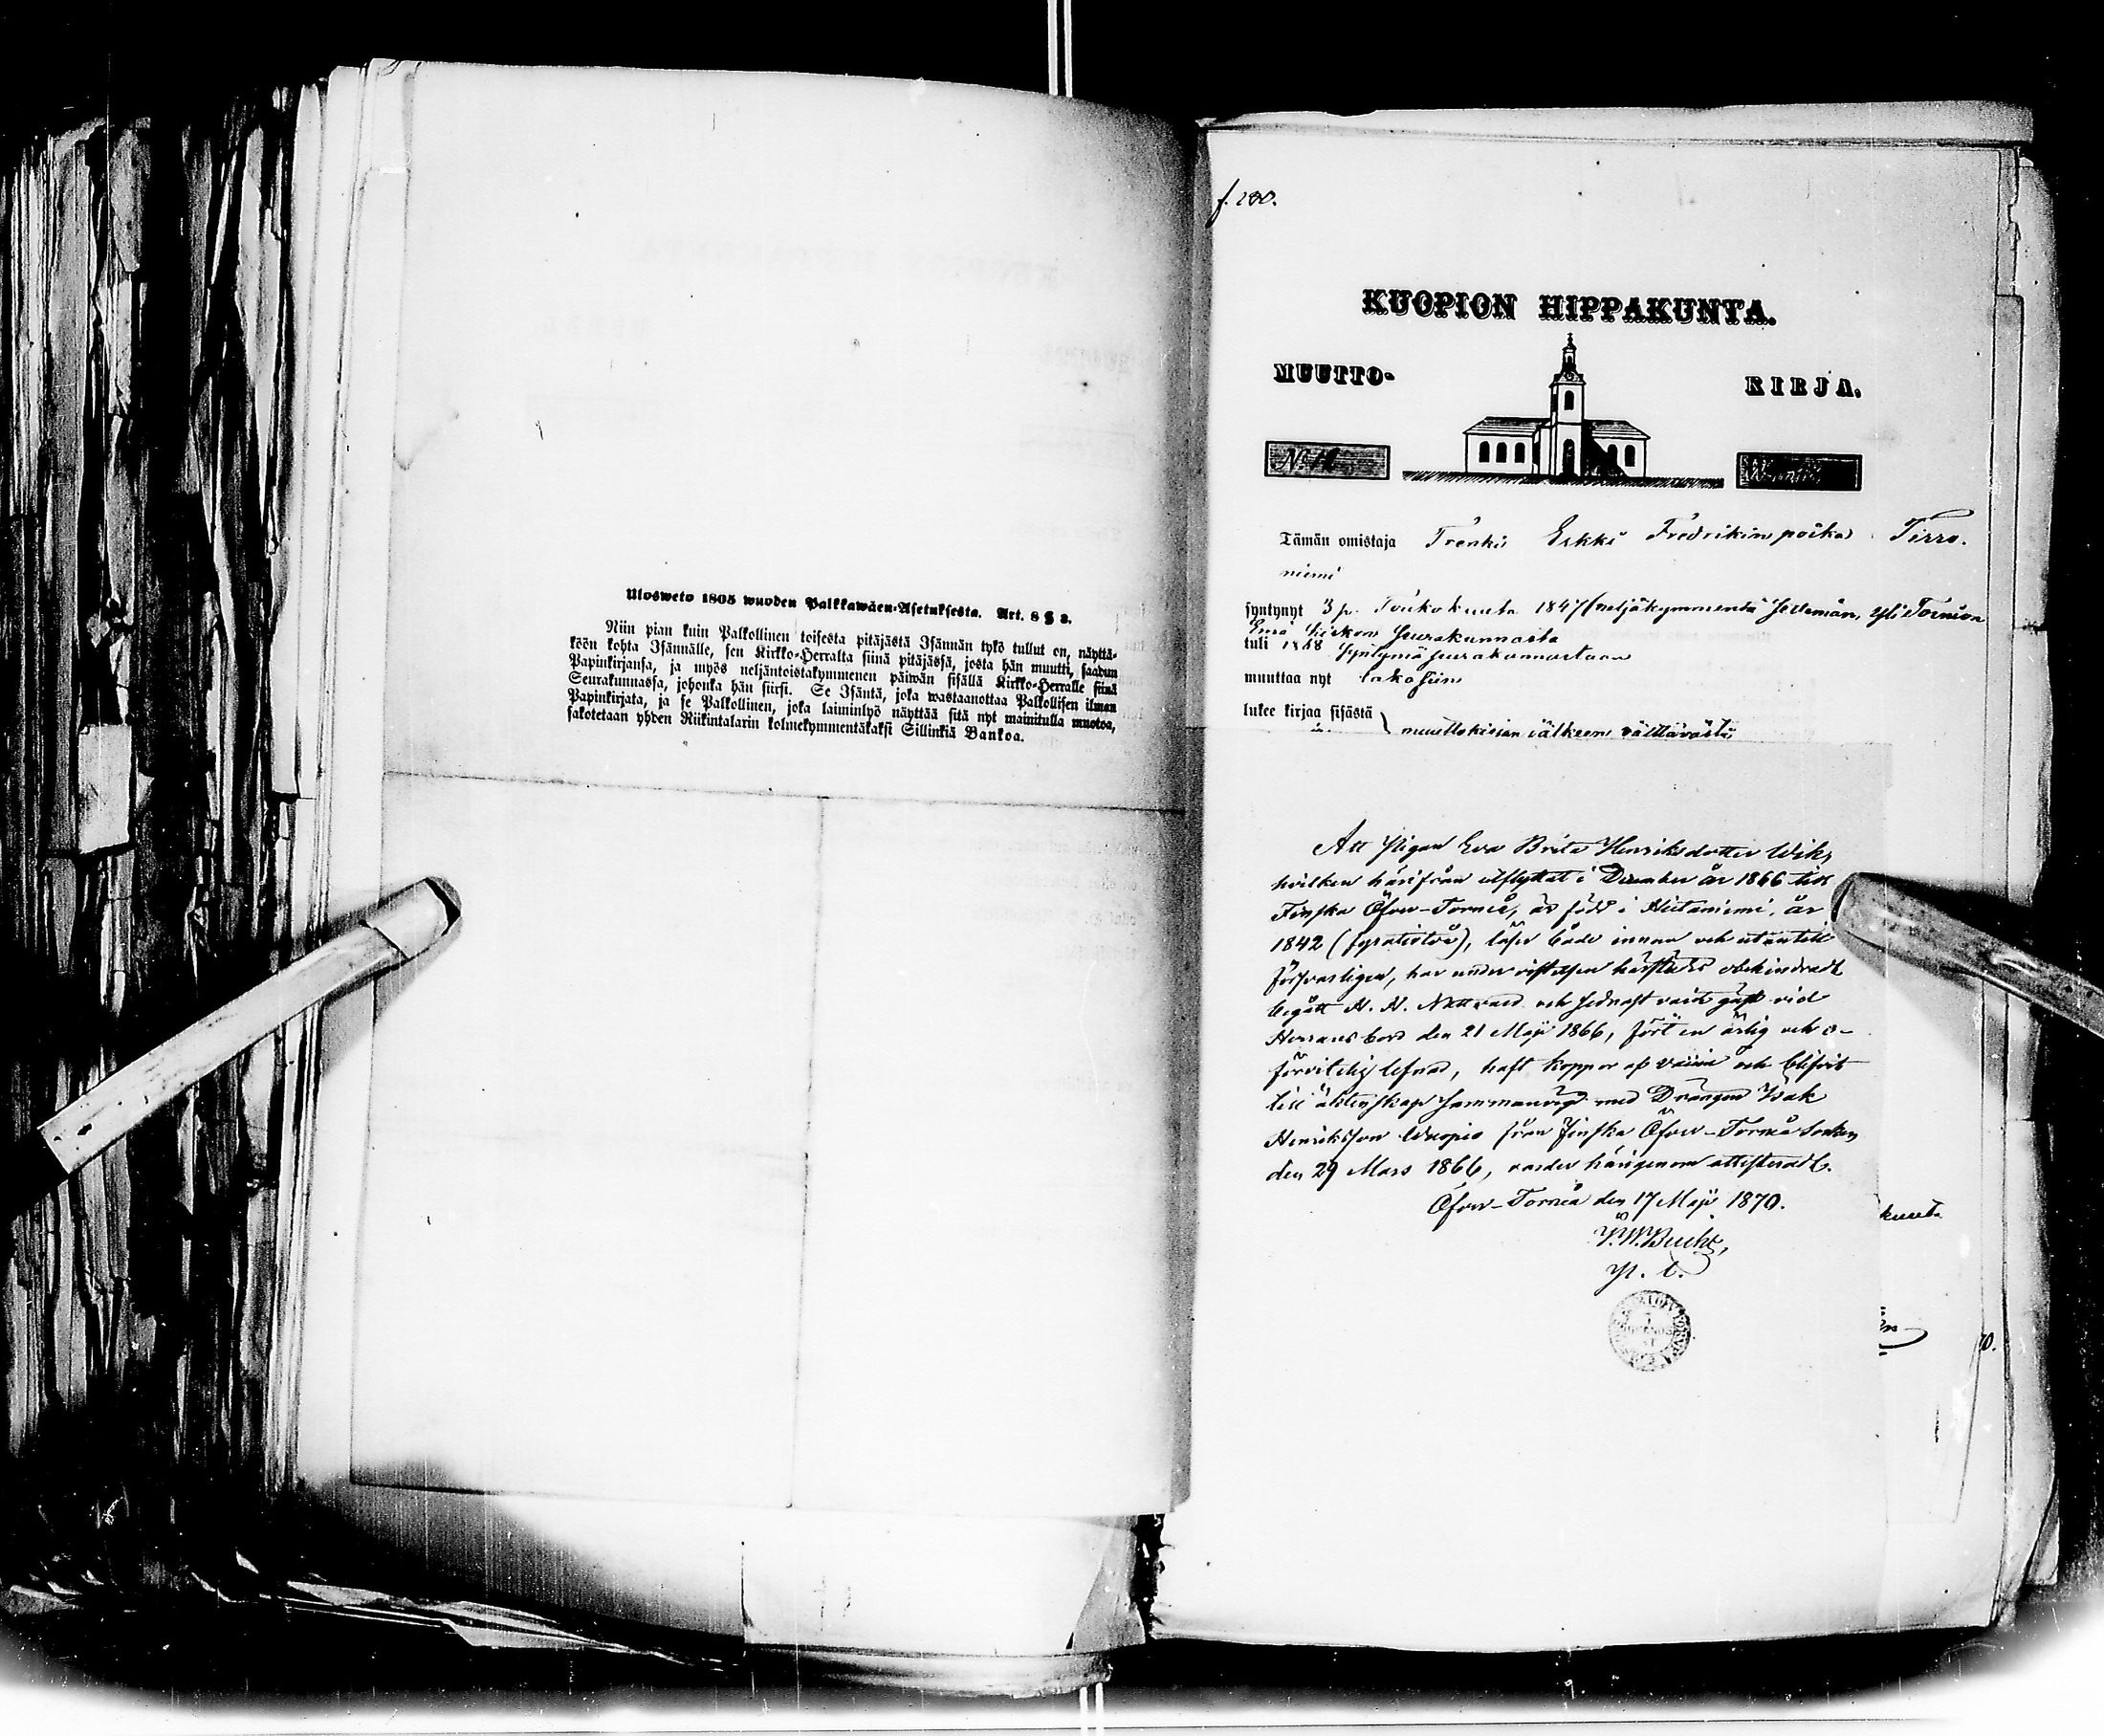 Ulosweto 1805 wuoden Palkkawäen-Asetuksesta. Art. 8 § 2.
Niin pian kuin Palkollinen toisesta pitäjästä Isännän tykö tullut on, näyttä-
köön kohta Isännälle, sen Kirkko-Herralta siinä pitäjässä, josta hän muutti, saadun
Papinkirjansa, ja myös neljäntoistakymmenen päiwän sisällä Kirkko-Herralle siinä
Seurakunnassa, johonka hän siirsi. Se Isäntä, joka wastaanottaa Palkollisen ilman
Papinkirjata, ja se Palkollinen, joka laiminlyö näyttää sitä nyt mainitulla muotoa,
sakotetaan yhden Riikintalarin kolmekymmentäkaksi Sillinkiä Bankoa.
f. 280.
KUOPION HIPPAKUNTA.
MUUTTO- KIRJA.
Tämän omistaja Trenki Erkki Fredrikin poika Tirro.
niemi
syntynyt 3 p. Toukokuuta 1847 (neljäkymmentä seitemän, Yli Tornion
Emä kirkon seurakunnasta
tuli 1868 syntymä seurakunnastaan
muuttaa nyt takasiin
lukee kirjaa sisästä
muuttokirjan jälkeen välttävästi
Att Pigan Eva Brita Henriksdotter Wik,
hvilken härifrån utflyttat i December år 1866 till
Finska Öfver-Torneå, är född i Hietaniemi, år
1842 (fyratiotvå), läser både innan och utantill
försvarligen, har under vistelsen härstädes obehindradt
begått H. H. Nattvard och sednast varit gäst vid
Herrans bord den 21 Maji 1866, fört en ärlig och o-
förvitelig lefnad, haft koppor af vaccin och blifvit
till äktenskap sammanvigd med Drängen Isak
Henriksson Wuopio från Finska Öfver-Torneå Socken
den 29 Mars 1866, varder härigenom attesteradt.
Öfver-Torneå den 17 Maji 1870.
P. W. Bucht,
kuuta